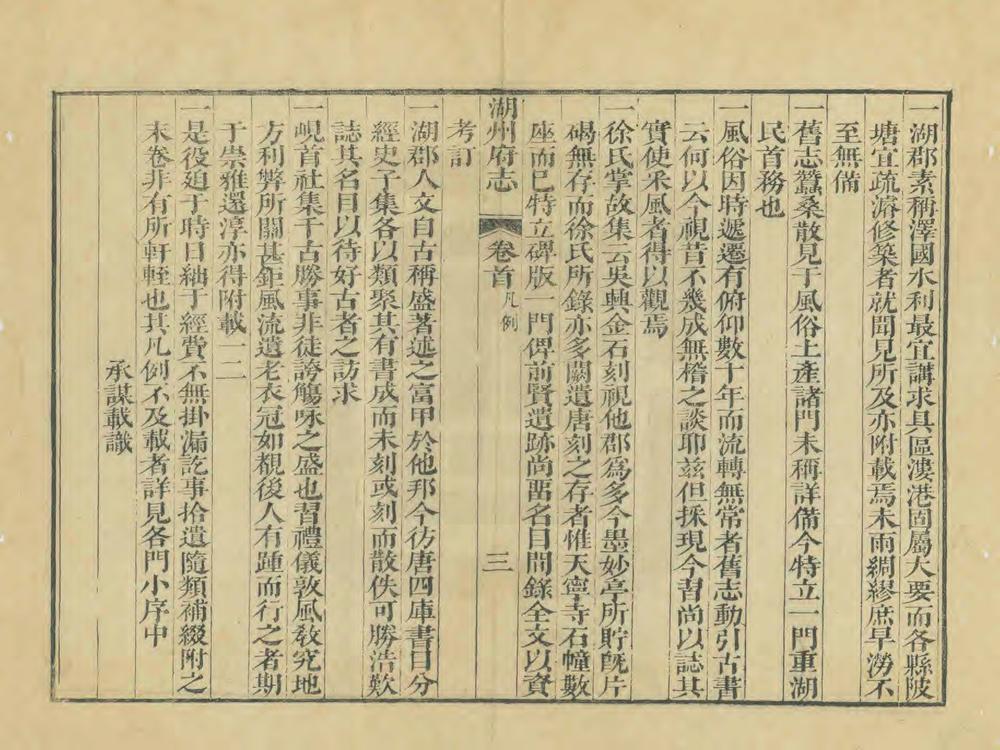 一湖郡素稱澤國水利最宜講求具區漊港固屬大要而各縣陂
塘宜疏濬修築者就聞見所及亦附載焉未雨綢繆庶旱澇不
至無備
一舊志蠶桑散見于風俗土產諸門未稱詳備今特立一門重湖
民首務也
一風俗因時遞遷有俯仰數十年而流轉無常者舊志動引古書
云何以今視昔不幾成無稽之談耶茲但採現今習尚以誌其
實使釆風者得以觀焉
一徐氏掌故集云吳興金石刻視他郡爲多今墨妙亭所貯旣片
碣無存而徐氏所錄亦多闕遺唐刻之存者惟天寧寺石幢數
座而已特立碑版一門俾前賢遺跡尚畱名目間錄全文以資
湖州府志
卷首
凡例
三
考訂
一湖郡人文自古稱盛著述之富甲於他邦今彷唐四庫書目分
經史子集各以類聚其有書成而未刻或刻而散佚可勝浩歎
誌其名目以待好古者之訪求
一峴首社集千古勝事非徒誇觴咏之盛也習禮儀敦風敎究地
方利弊所關甚鉅風流遺老衣冠如覩後人有踵而行之者期
于崇雅還淳亦得附載一二
一是役廹于時日紬于經費不無掛漏訖事拾遺隨類補綴附之
末卷非有所軒輊也其凡例不及載者詳見各門小序中
承謀載識